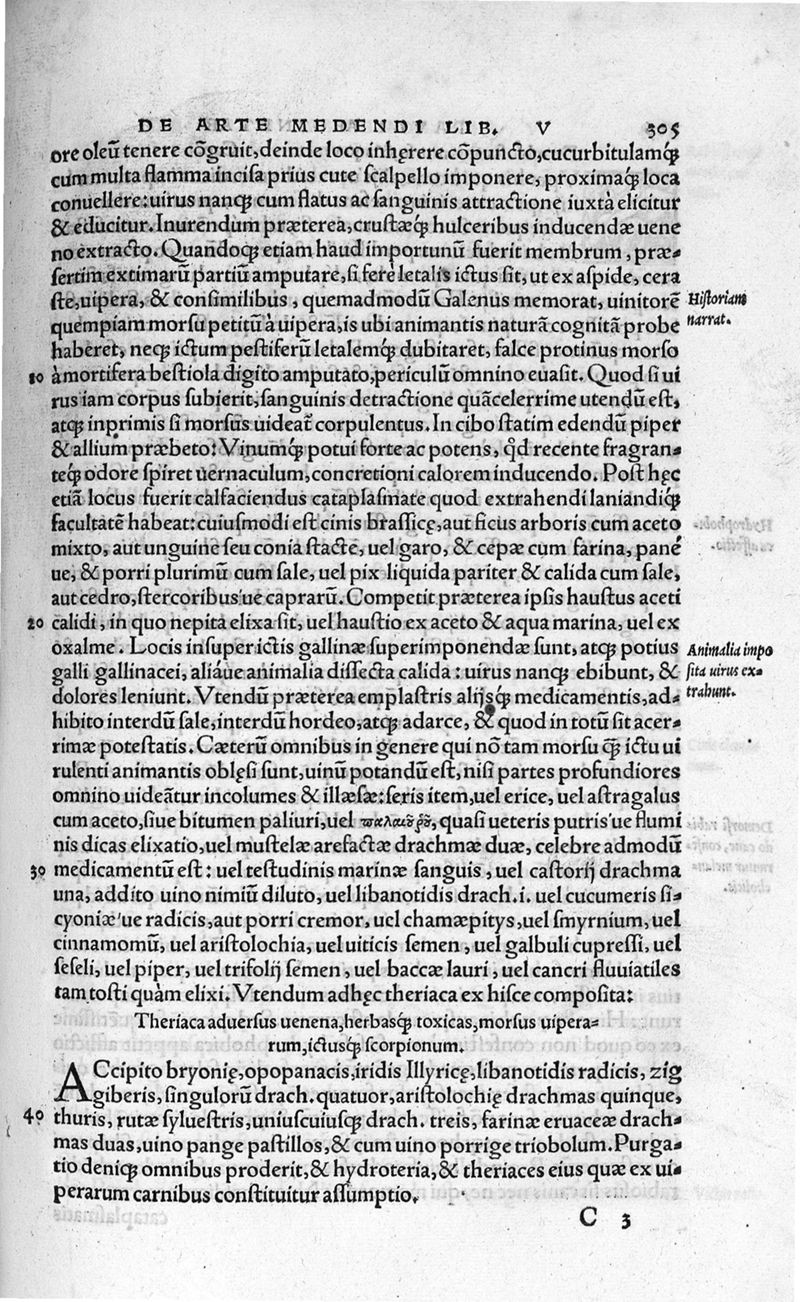 DE ARTE MEDENDI LIB. V 305
ore oleũ tenere cõgruit, deinde loco inhęrere cõpuncto, cucurbitulamq́;
cum multa flamma incisa prius cute scalpello imponere, proximaq́; loca
conuellere: uirus nanq; cum flatus ac sanguinis attractione iuxtà elicitur
& educitur. Inurendum præterea, crustæq́; hulceribus inducendæ uene
no extracto. Quandoq; etiam haud importunũ fuerit membrum, præ-
sertim extimarũ partiũ amputare, si ferè letalis ictus sit, ut ex aspide, cera
ste, uipera, & consimilibus, quemadmodũ Galenus memorat, uinitorẽ
Historiam
quempiam morsu petitũ à uipera, is ubi animantis naturã cognitã probe
narrat.
haberet, neq; ictum pestiferũ letalemq́; dubitaret, falce protinus morso
10 à mortifera bestiola digito amputato, periculũ omnino euasit. Quod si ui
rus iam corpus subierit, sanguinis detractione quãcelerrime utendũ est,
atq; inprimis si morsus uideat᷑ corpulentus. In cibo statim edendũ piper
& allium præbeto: Vinumq́; potui forte ac potens, qd́ recente fragran-
teq́; odore spiret uernaculum, concretioni calorem inducendo. Post hęc
etiã locus fuerit calfaciendus cataplasmate quod extrahendi laniandiq́;
facultatẽ habeat: cuiusmodi est cinis brassicę, aut ficus arboris cum aceto
mixto, aut unguine seu conia stacte, uel garo, & cepæ cum farina, pane
ue, & porri plurimũ cum sale, uel pix liquida pariter & calida cum sale,
aut cedro, stercoribus'ue caprarũ. Competit præterea ipsis haustus aceti
20 calidi, in quo nepita elixa sit, uel haustio ex aceto & aqua marina, uel ex
oxalme. Locis insuper ictis gallinæ superimponendæ sunt, atq; potius
Animalia impo
galli gallinacei, aliáue animalia dissecta calida: uirus nanq; ebibunt, &
sita uirus ex-
dolores leniunt. Vtendũ præterea emplastris alijsq́; medicamentis, ad-
trahunt.
hibito interdũ sale, interdũ hordeo, atq; adarce, & quod in totũ sit acer-
rimæ potestatis. Cæterũ omnibus in genere qui nõ tam morsu q̃ ictu ui
rulenti animantis oblęsi sunt, uinũ potandũ est, nisi partes profundiores
omnino uideãtur incolumes & illæsæ: seris item, uel erice, uel astragalus
cum aceto, siue bitumen paliuri, uel quasi ueteris putris'ue flumi
nis dicas elixatio, uel mustelæ arefactæ drachmæ duæ, celebre admodũ
30 medicamentũ est: uel testudinis marinæ sanguis, uel castorij drachma
una, addito uino nimiũ diluto, uel libanotidis drach. i. uel cucumeris si-
cyoniæ'ue radicis, aut porri cremor, uel chamæpitys, uel smyrnium, uel
cinnamomũ, uel aristolochia, uel uiticis semen, uel galbuli cupressi, uel
seseli, uel piper, uel trifolij semen, uel baccæ lauri, uel cancri fluuiatiles
tam tosti quàm elixi. Vtendum adhęc theriaca ex hisce composita:
Theriaca aduersus uenena, herbasq́; toxicas, morsus uipera-
rum, ictusq́; scorpionum.
ACcipito bryonię, opopanacis, iridis Illyricę, libanotidis radicis, zig
giberis, singulorũ drach. quatuor, aristolochię drachmas quinque,
40 thuris, rutæ syluestris, uniuscuiusq; drach. treis, farinæ eruaceæ drach-
mas duas, uino pange pastillos, & cum uino porrige triobolum. Purga-
tio deniq; omnibus proderit, & hydroteria, & theriaces eius quæ ex ui-
perarum carnibus constituitur assumptio.
C 3